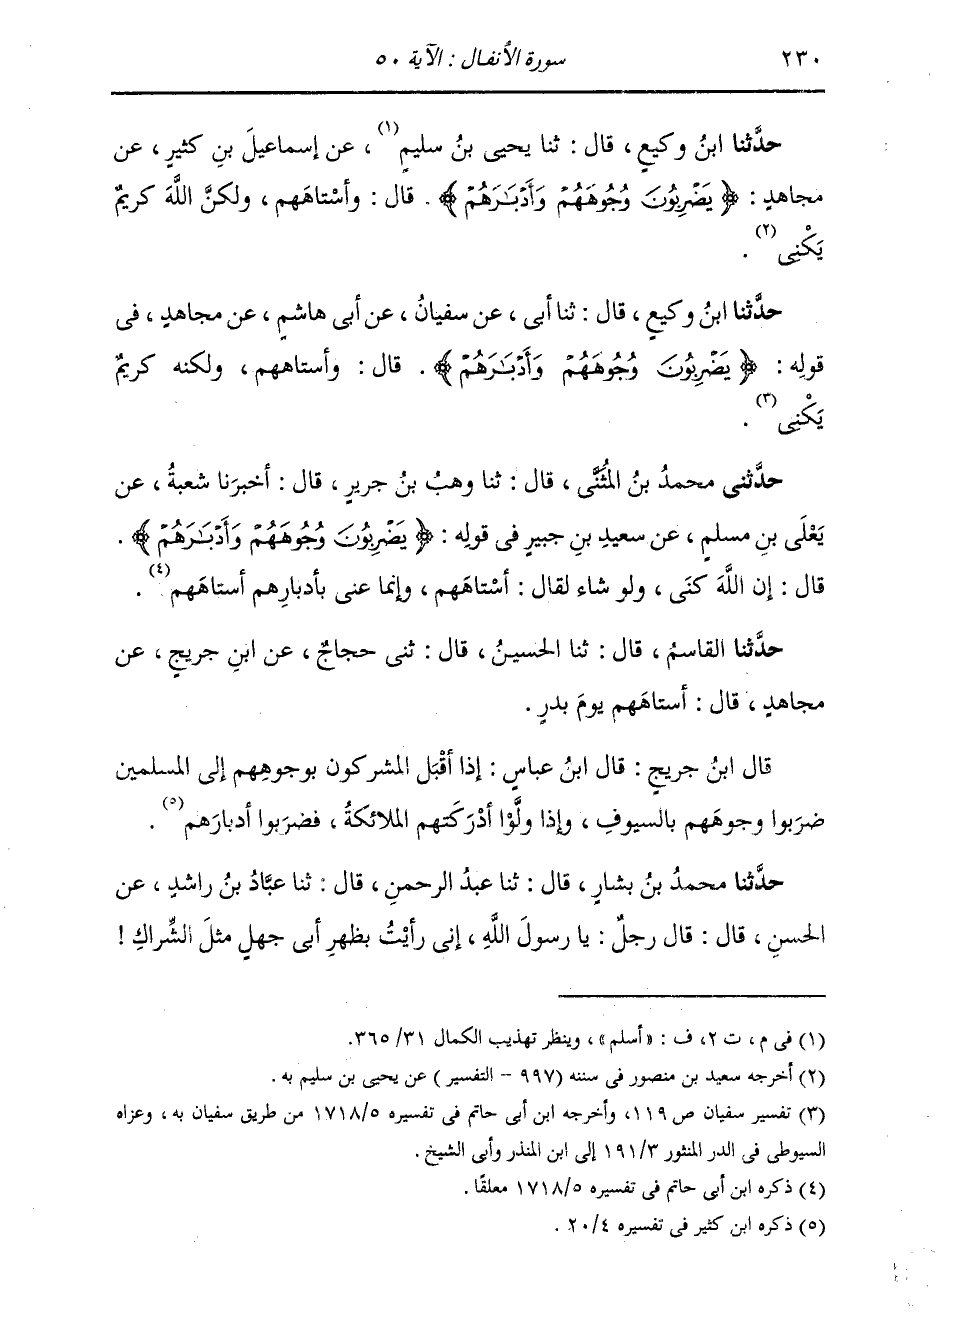 ٢٣٠
سورة الأنفال : الآية ٥٠
حدَّثنا ابنُ وكيعٍ ، قال : ثنا يحيى بنُ سليمٍ(١) ، عن إسماعيلَ بنِ كثيرٍ ، عن
مجاهدٍ : ﴿ يَضْرِبُونَ وُجُوهَهُمْ وَأَدْبَـٰرَهُمْ ﴾ . قال : وأسْتاهَهم ، ولكنَّ اللَّهَ كريمٌ
يَكْنِى(٢) .
حدَّثنا ابنُ وكيعٍ ، قال : ثنا أبى ، عن سفيانُ ، عن أبى هاشمٍ ، عن مجاهدٍ ، فى
قولِه : ﴿ يَضْرِبُونَ وُجُوهَهُمْ وَأَدْبَـٰرَهُمْ ﴾ . قال : وأستاههم ، ولكنه كريمٌ
يَكْنِى(٣) .
حدَّثنى محمدُ بنُ المُثَنَّى ، قال : ثنا وهبُ بنُ جريرٍ ، قال : أخبرَنا شعبةُ ، عن
يَعْلَى بنِ مسلمٍ ، عن سعيدِ بنِ جبيرٍ فى قولِه : ﴿ يَضْرِبُونَ وُجُوهَهُمْ وَأَدْبَـٰرَهُمْ ﴾ .
قال : إن اللَّهَ كنَى ، ولو شاء لقال : أسْتاهَهم ، وإنما عنى بأدبارِهم أستاهَهم(٤) .
حدَّثنا القاسمُ ، قال : ثنا الحسينُ ، قال : ثنى حجاجٌ ، عن ابنِ جريجٍ ، عن
مجاهدٍ ، قال : أستاهَهم يومَ بدرٍ .
قال ابنُ جريجٍ : قال ابنُ عباسٍ : إذا أقْبَل المشركون بوجوهِهم إلى المسلمين
ضرَبوا وجوهَهم بالسيوفِ ، وإذا ولَّوْا أدْرَكَتهم الملائكةُ ، فضرَبوا أدبارَهم(٥) .
حدَّثنا محمدُ بنُ بشارٍ ، قال : ثنا عبدُ الرحمنِ ، قال : ثنا عبَّادُ بنُ راشدٍ ، عن
الحسنِ ، قال : قال رجلٌ : يا رسولَ اللَّهِ ، إنى رأيْتُ بظهرِ أبى جهلٍ مثلَ الشِّراكِ !
(١) فى م ، ت ٢، ف : «أسلم» ، وينظر تهذيب الكمال ٣١/ ٣٦٥.
(٢) أخرجه سعيد بن منصور فى سننه (٩٩٧ - التفسير ) عن يحيى بن سليم به .
(٣) تفسير سفيان ص ١١٩، وأخرجه ابن أبى حاتم فى تفسيره ١٧١٨/٥ من طريق سفيان به ، وعزاه
السيوطى فى الدر المنثور ١٩١/٣ إلى ابن المنذر وأبى الشيخ .
(٤) ذكره ابن أبى حاتم فى تفسيره ١٧١٨/٥ معلقًا .
(٥) ذكره ابن كثير فى تفسيره ٢٠/٤ .